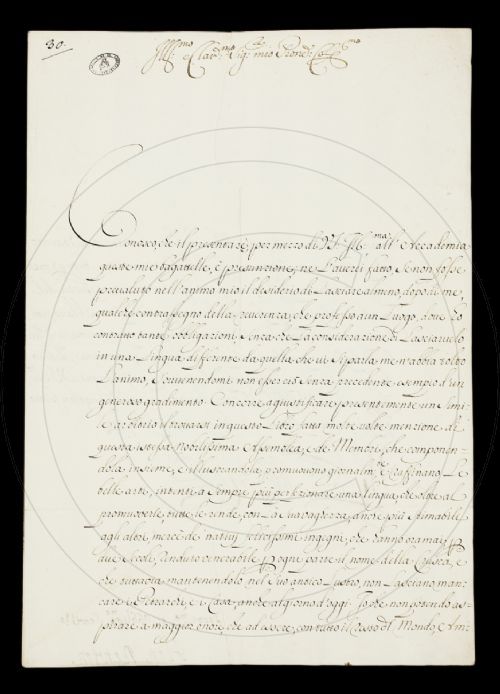 30.
Ill.mo e Clar.mo Sig.re mio Pron.e Col.mo
Conosco, che il presentare, per mezzo di V.S. Ill.ma all' Accademia
queste mie bagattelle, è presunzione; ne l'averei fatto, se non fosse
prevaluto nell' animo mio il desiderio di lasciare almeno, dopo di me,
qualche contrasegno della reverenza, che professo a un Luogo, a cui Io
conoravo tante obbligazioni, senza che la considerazione di lasciarvelo
in una Lingua differente da quella, che vi si parla, me n'abbia tolto
l'animo, sovvenendomi non esser ciò senza precedente esempio d'un
generoso gradimento. Concorre a giustificare presentemente un simi-
le arbitrio il trovarsi in questo Libro fatta molte volte menzione di
questa istessa nobilissima Assemblea, e de' Membri, che componen-
dola insieme, e illustrandola, promuovono giornalm.te e raffinano le
belle arti, intenti a sempre più perfezionare una Lingua, che oltre al
promuoverle, tutte le rende, con la sua vaghezza, anco più Amabili
agli altri, mercè de' nativi felicissimi ingegni, che hanno oramai, p
due secoli, renduto venerabile p ogni parte il nome della Crusca, e
che tuttavia mantenendola nel suo antico Lustro, non lasciano man-
care i Petrarchi, e i Casa, anche al giorno d'oggi. Io poi non potendo as-
pirare a maggior onore, che ad essere, con tutto il resto del Mondo, e Am-